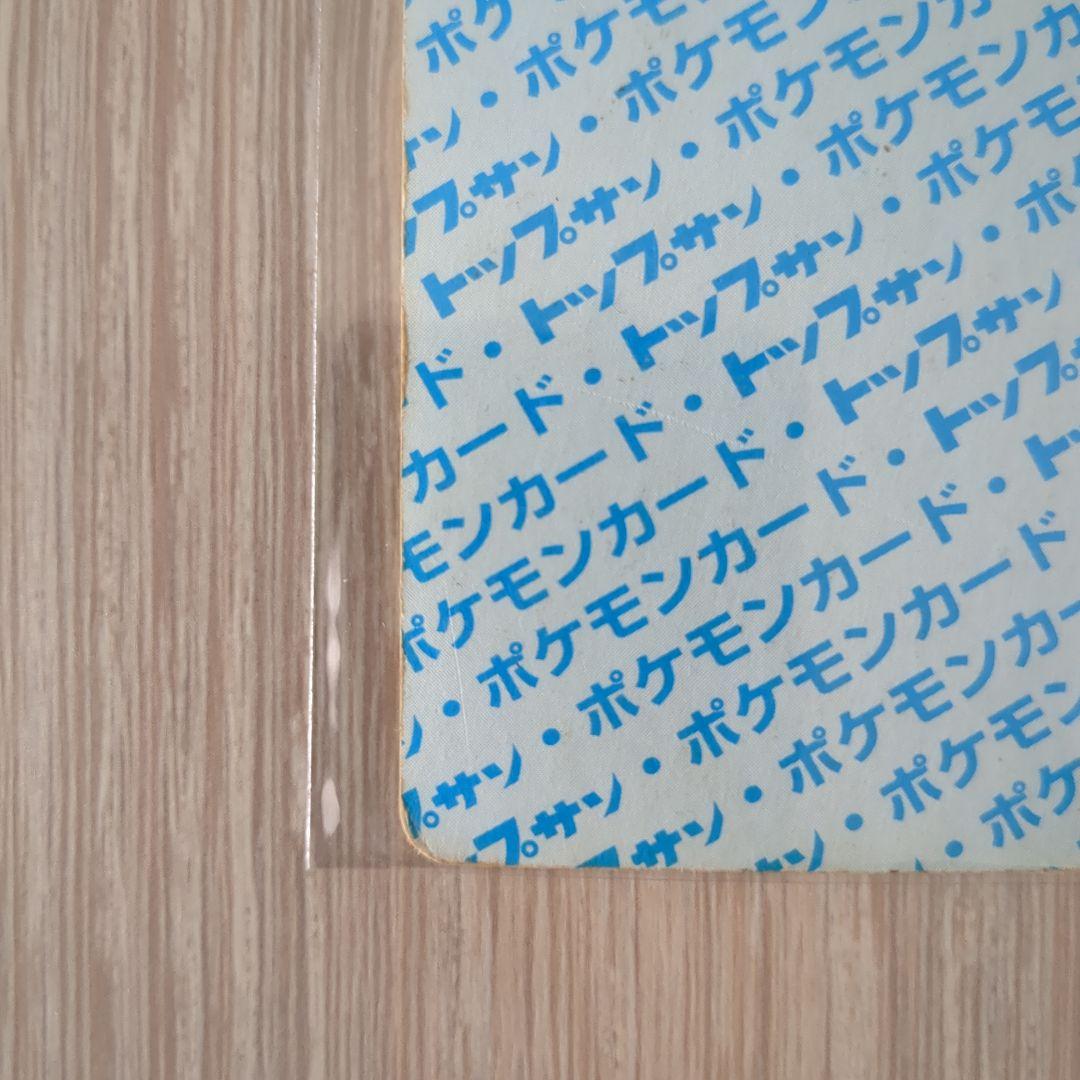 ポケ
ン・ポケモ
ップサン・ポケモン
トップサン・ポケモンカ
ド・トップサン・ポケモンカ
カード・トップサン・ポケモ
モンカード・トップサン・ポケ
ポケモンカード・トップサン
ン・ポケモンカード・トップ
プサン・ポケモンカード・ト
ップサン・ポケモンカード
プサン・ポケモンカー
サン・ポケモン
・ポケ